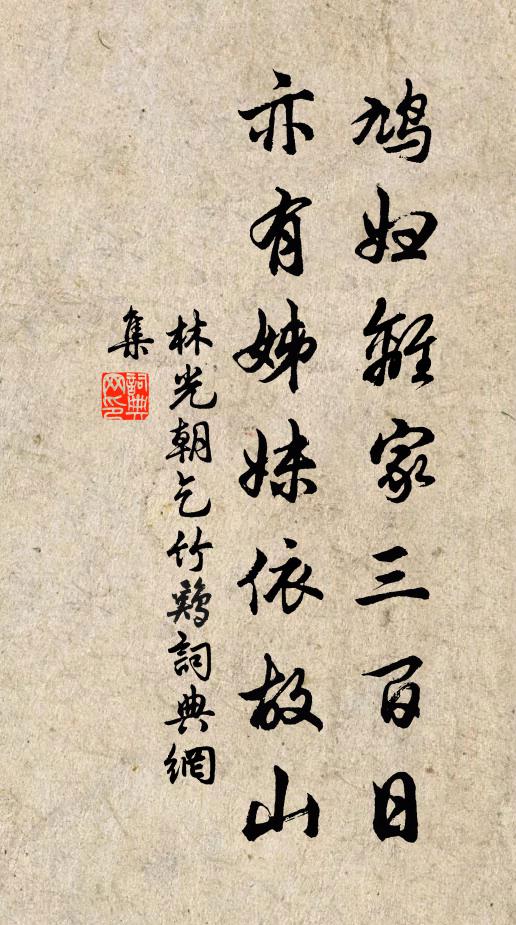 鳩妇離家三百日
亦有姊妹依故山
林光朝乞竹鷄詞典網
集
詞典网印